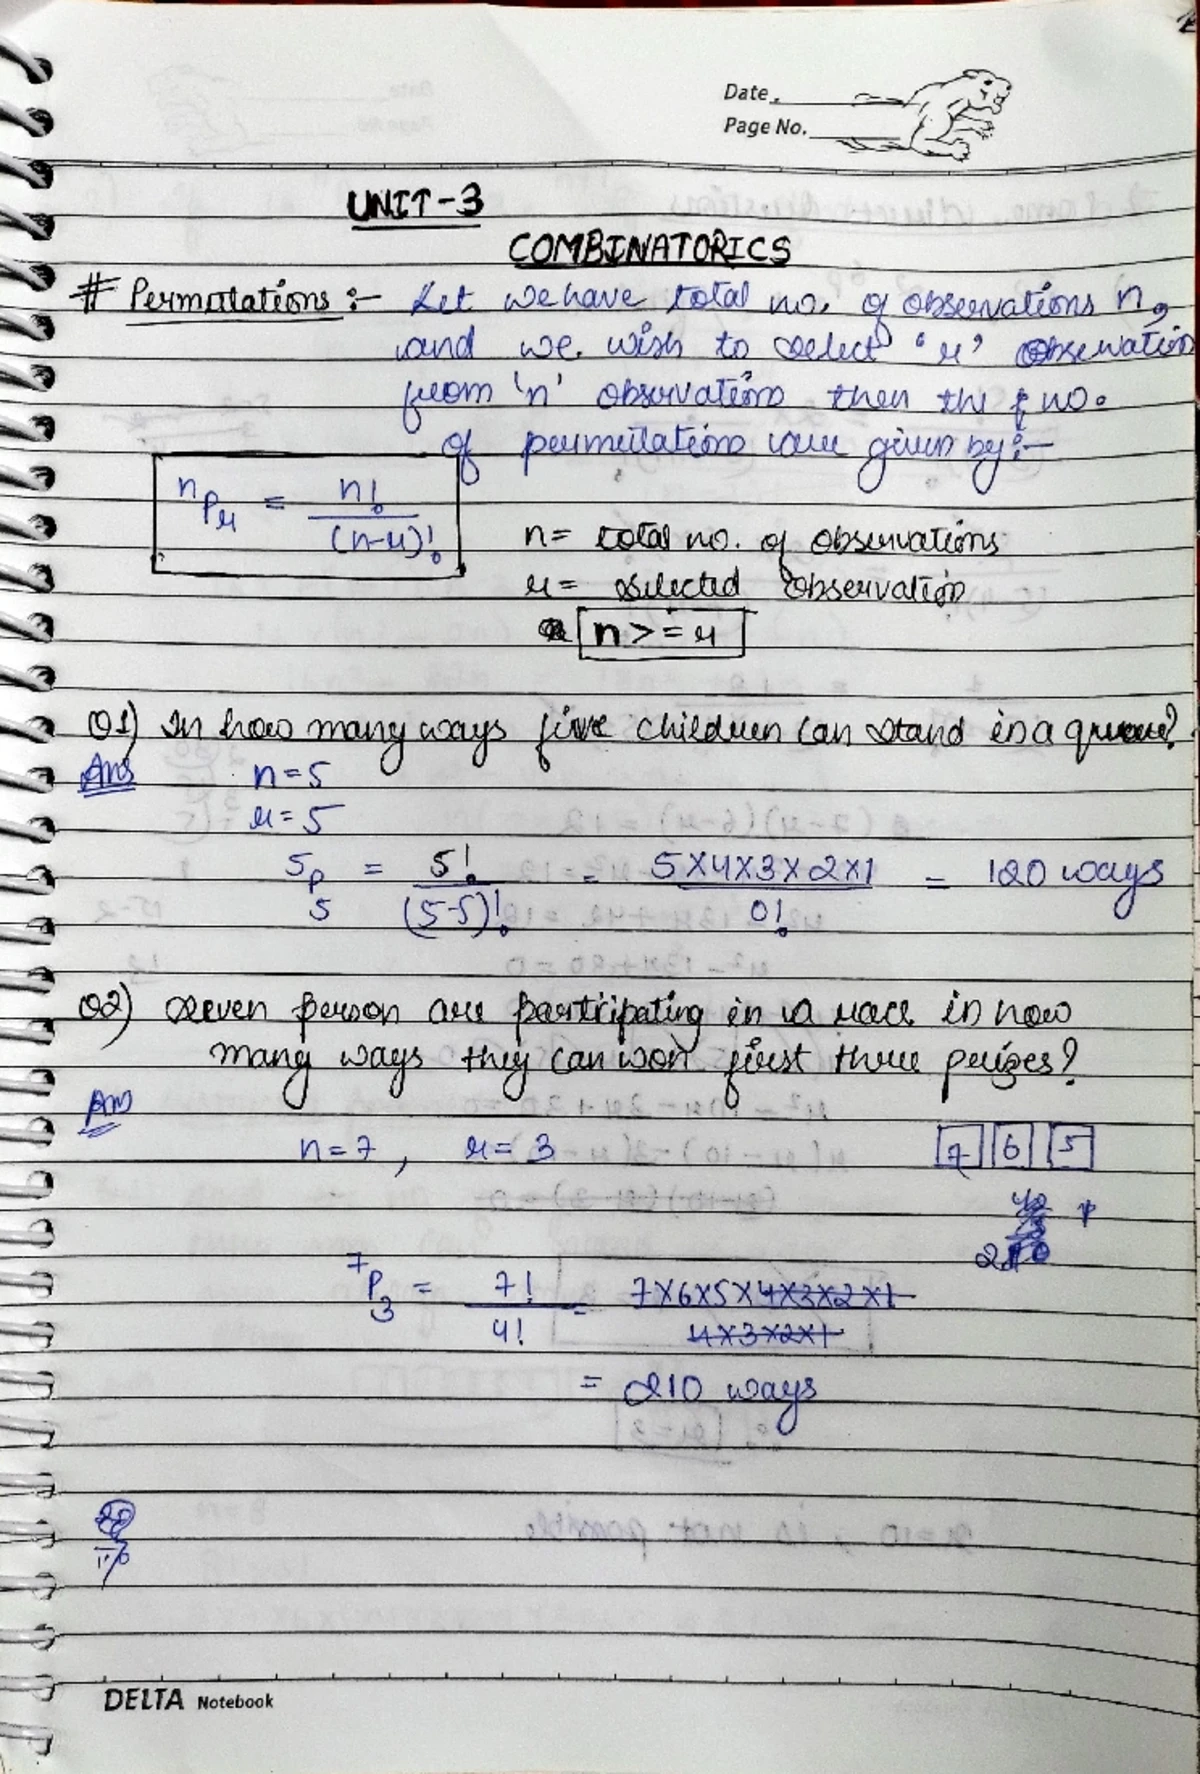 Date
Page No.
UNIT-3
COMBINATORICS
# Permutations :- Let we have total no. of observations n,
and we wish to select 'r' observation
from 'n' observation then the no.
of permutation are given by :-
nPr = n! / (n-r)!
n = total no. of observations
r = selected observation
n >= r
Q1) In how many ways five children can stand in a queue?
Ans n=5
r=5
5P5 = 5! / (5-5)! = 5X4X3X2X1 / 0! = 120 ways
Q2) Seven person are participating in a race in how
many ways they can won first three prizes?
Ans
n=7, r=3
7 6 5
7P3 = 7! / 4! = 7X6X5X4X3X2X1 / 4X3X2X1
= 210 ways
DELTA Notebook